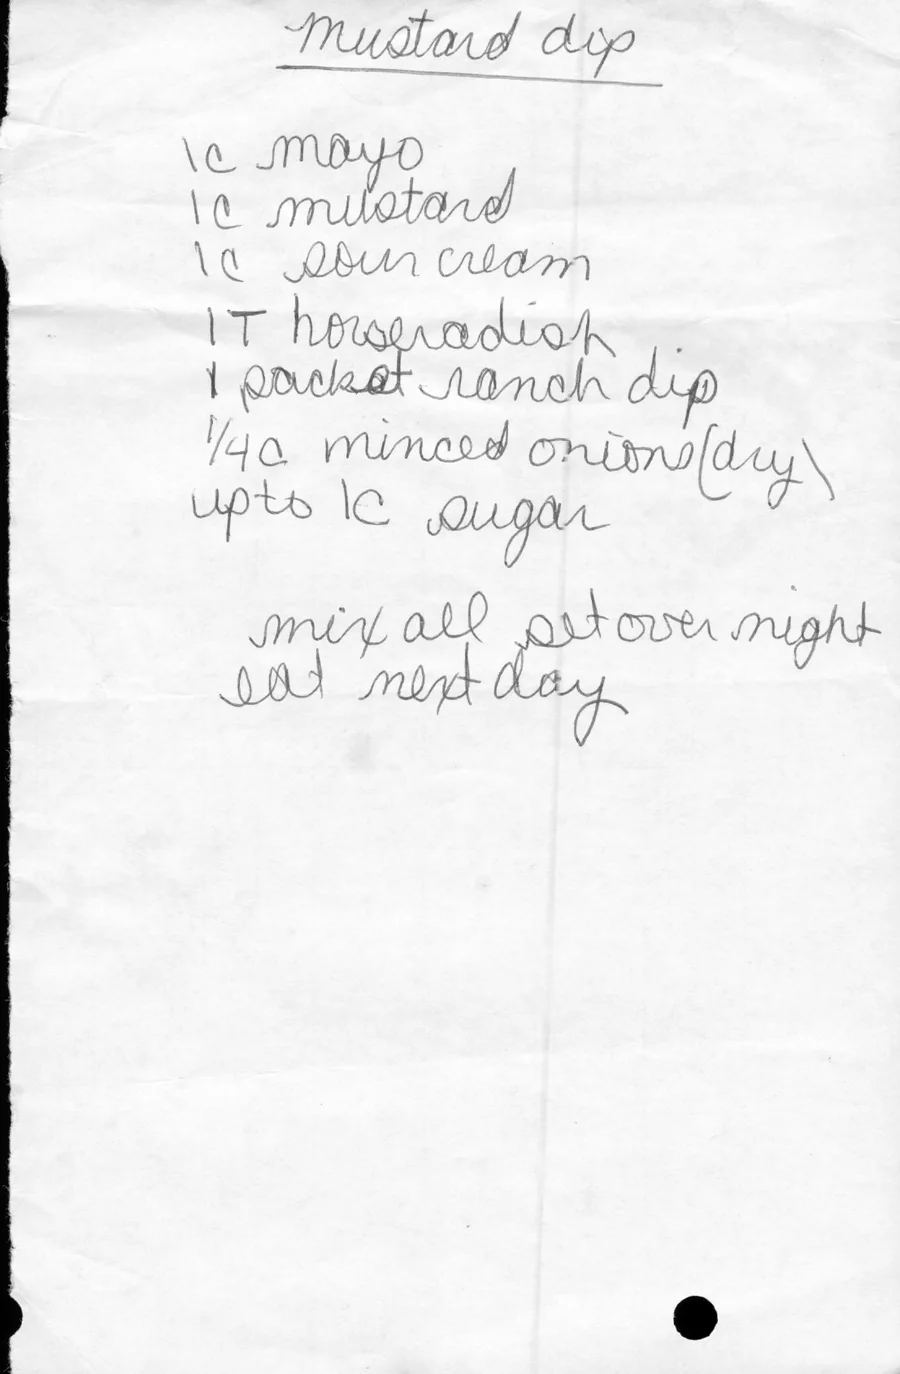 Mustard dip
1c mayo
1c mustard
1c sour cream
1T horseradish
1 packet ranch dip
1/4c minced onions (dry)
up to 1c sugar
mix all set over night
eat next day